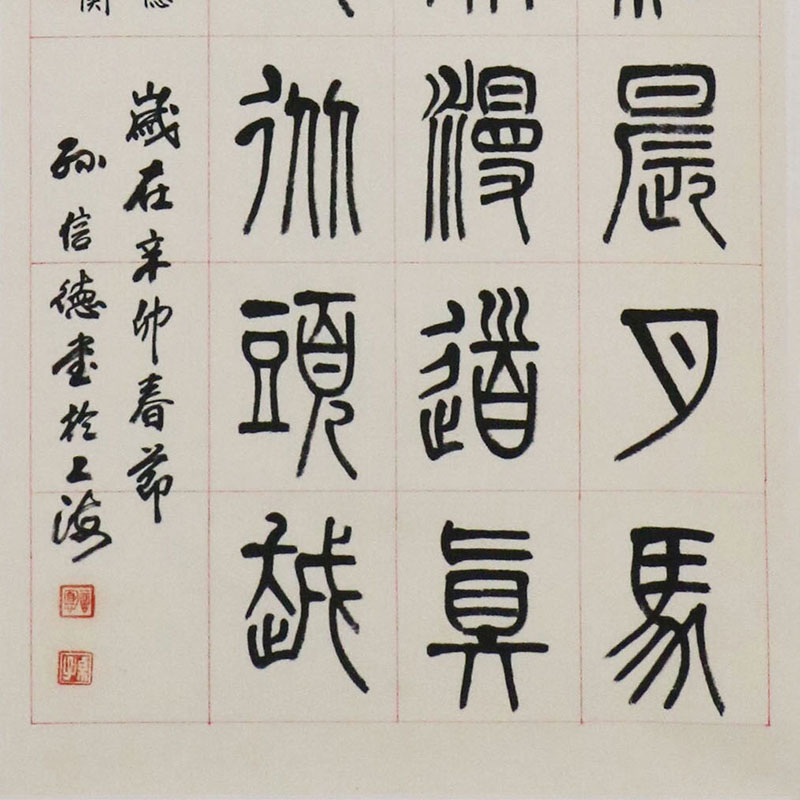 晨月馬
漫道眞
從頭越
歲在辛卯春節
孫信德書於上海